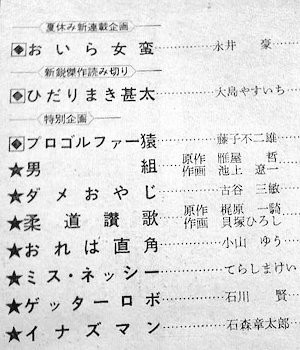 夏休み新連載企画
◆おいら女蛮……永井 豪
新鋭傑作読み切り
◆ひだりまき甚太……大島やすいち
特別企画
◆プロゴルファー猿……藤子不二雄
★男組……原作 雁屋 哲
作画 池上 遼一
★ダメおやじ……古谷 三敏
★柔道讃歌……原作 梶原 一騎
作画 貝塚ひろし
★おれは直角……小山 ゆう
★ミス・ネッシー……てらしまけい
★ゲッターロボ……石川 賢
★イナズマン……石森章太郎